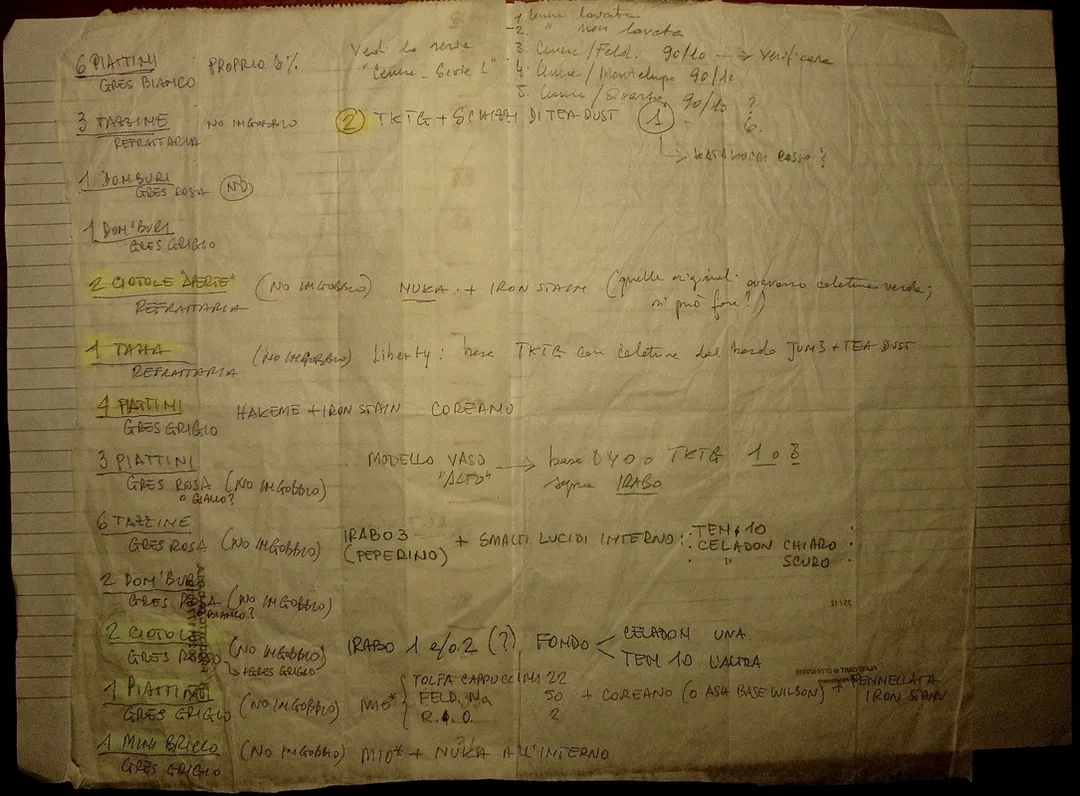 1. Cenere lavata
2. " non lavata
3. Cenere/Feld. 90/10 → verificare
4. Cenere/Montelupo 90/10
5. Cenere/Quarzo 90/10 ?
6.
6 PIATTINI PROPRIO 6% Vedi la serie
GRES BIANCO "Cenere_Serie 1"
3 TAZZINE NO INGOBBIO 2 TKTG + SCHIZZI DI TEA DUST 1
REFRATTARIA → KATAKUCHI ROSSO?
1 DOMBURI
GRES ROSA NO
1 DOM'BURI
GRES GRIGIO
2 CIOTOLE "APERTE" (NO INGOBBIO) NUKA + IRON STAIN (quelle originali avevano colature verde;
REFRATTARIA si può fare?)
1 TAZZA (NO INGOBBIO) Liberty: base TKTG con colature dal bordo JUM3 + TEA DUST
REFRATTARIA
4 PIATTINI HAKEME + IRON STAIN COREANO
GRES GRIGIO
3 PIATTINI MODELLO VASO → base 040 o TKTG 1 o 3
GRES ROSA (NO INGOBBIO) "ALTO" sopra IRABO
O GIALLO?
6 TAZZINE IRABO 3 + SMALTI LUCIDI INTERNO: · TEM 10
GRES ROSA (NO INGOBBIO) (PEPERINO) · CELADON CHIARO
· " SCURO
2 DOM'BURI
GRES ROSA (NO INGOBBIO)
O BIANCO?
2 CIOTOLE (NO INGOBBIO) IRABO 1 e/o 2 (?) FONDO < CELADON UNA
GRES ROSSO → +GRES GRIGIO TEM 10 L'ALTRA
1 PIATTINO (NO INGOBBIO) MIO* { TOLFA CAPPUCCINI 22
GRES GRIGIO FELD. Na 50 + COREANO (O ASH BASE WILSON) + PENNELLATA IRON STAIN
R.I.O. 2
1 MINI BRICCO (NO INGOBBIO) MIO* + NUKA ALL'INTERNO
GRES GRIGIO